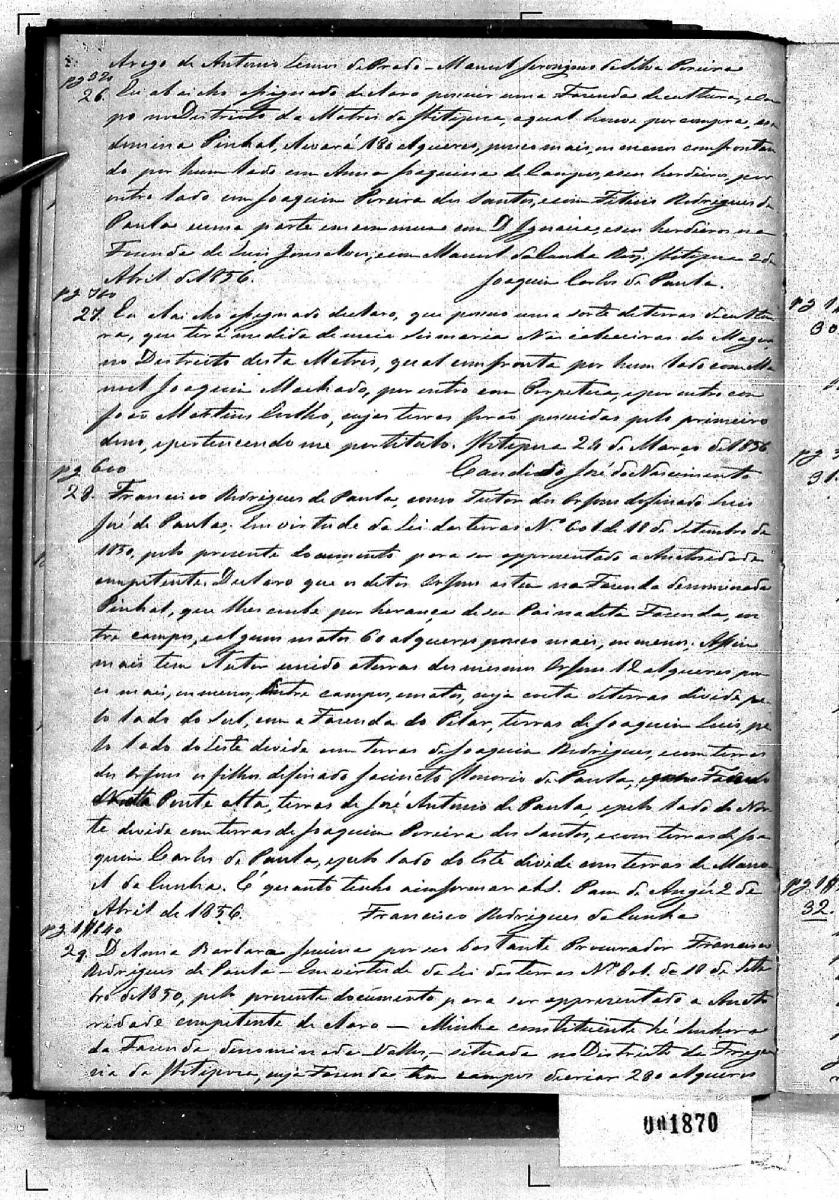 Arogo de Antonio Lemos do Prado - Manoel Jeronymo da Silva Pereira
pg 320
26. Eu abaicho assignado declaro possuir uma Fazenda de cultura, e cam-
po no Districto da Matris da Ibitipoca, a qual houve por compra, e se
denmina Pinhal, levará 180 alqueres, pouco mais, ou menos confrontan
do por hum lado com Anna Joaquina de Campos, e seus herdeiros, por
outro lado com Joaquim Pereira dos Santos, e com Felicio Rodrigues de
Paula e uma parte em commum com D. Ignacia, e seus herdeiros na
Fazenda de Luis Gonsalves, e com Manoel da Cunha Ibitipoca 2 de
Abril de 1856. Joaquim Carlos de Paula.
pg
27. Eu abaicho assignado declaro, que possuo uma sorte de terras de cultu
ra, que terá medida de meia sismaria Nas cabeceiras do
no Districto desta Matris, qual confronta por hum lado com Ma
noel Joaquim Machado, por outro com Perpetua, e por outro com
João Matheus Coelho, cujas terras forão possuidas pelo primeiro
dono, e pertencendo me por titulo. Ibitipoca 26 de Março de 1856
Candido José do Nascimento
pg 600
28. Francisco Rodrigues de Paula, como Tutor dos Orfãos do finado Luis
José de Paula, Em virtude da Lei das terras Nº 601 de 18 de setembro de
1850, pelo presente documento para ser appresentado a Authoridade
competente. Declaro que os ditos Orfãos na Fazenda denminada
Pinhal, que lhes coube por herança de seu Pai na dita Fazenda, en
tre campos, e alguns matos 60 alqueres pouco mais, ou menos. Assim
mais tem o Tutor unido a terras dos mesmos Orfãos 12 alqueres pou
co mais, ou menos, Entre campos, e matos, cuja terras divide pe
lo lado do Sul, com a Fazenda do Pilar, terras de Joaquim Luis, pe
lo lado do Leste divide com terras de Joaquim Rodrigues, e com terras
dos Orfãos e filhos do finado Jacincto Honorio de Paula,
Ponte alta, terras de José Antonio de Paula, e pelo lado do Nor-
te divide com terras de Joaquim Pereira dos Santos, e com terras de Joa
quim Carlos de Paula, e pelo lado do Oeste divide com terras de Mano
el da Cunha. É quanto tenho a informar a Pam. do Angú 2 de
Abril de 1856. Francisco Rodrigues da Cunha
29. D. Anna Barbara por seu bastante Procurador Francisco
Rodrigues de Paula - Em virtude da Lei das terras Nº 601. de 18 de Setem
bro de 1850, pelo presente documento, para ser appresentado a Autho
ridade competente declaro - Minha constituinte hé Senhora
da Fazenda denominada - situada no Districto da Fregue
sia da Ibitipoca, cuja Fazenda tem campos de criar 280 alqueres
pg
30
pg
31
pg
32.
001870